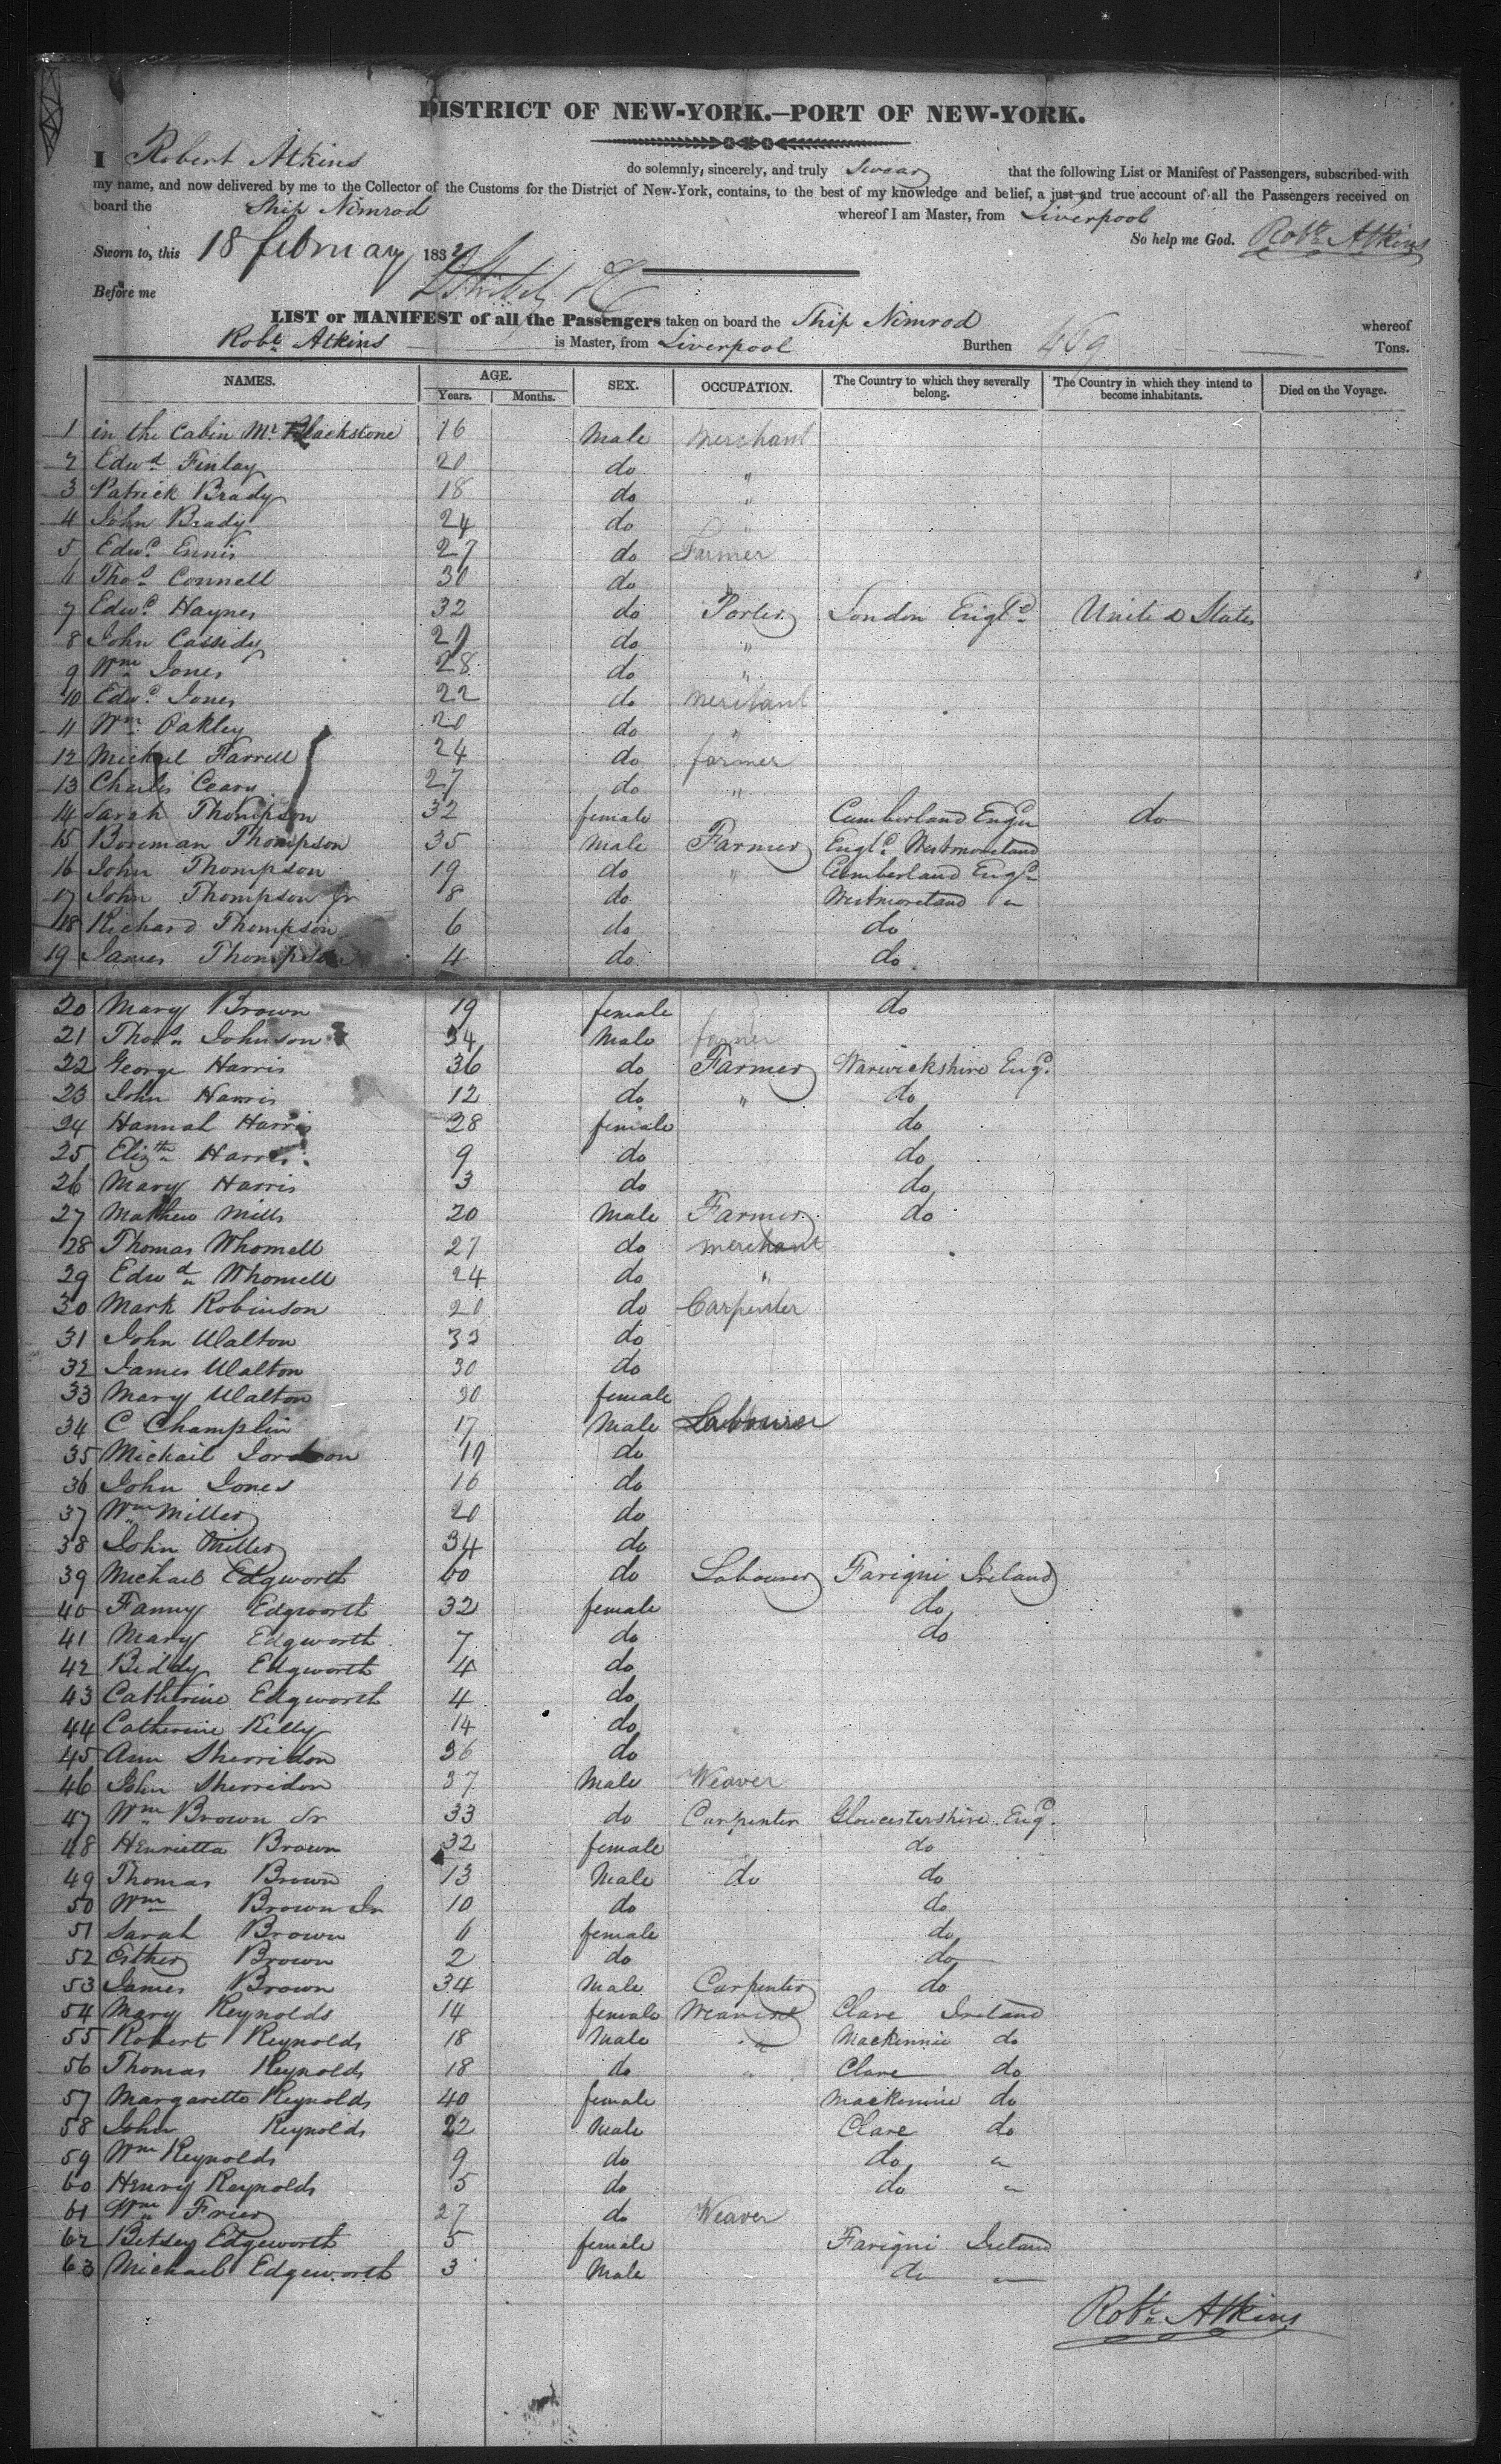 DISTRICT OF NEW-YORK.—PORT OF NEW-YORK.
I Robert Atkins do solemnly, sincerely, and truly Swear that the following List or Manifest of Passengers, subscribed with
my name, and now delivered by me to the Collector of the Customs for the District of New-York, contains, to the best of my knowledge and belief, a just and true account of all the Passengers received on
board the Ship Nimrod whereof I am Master, from Liverpool
So help me God. Robt Atkins
Sworn to, this 18 february 183
Before me
LIST or MANIFEST of all the Passengers taken on board the Ship Nimrod whereof
Robt Atkins is Master, from Liverpool Burthen Tons.
NAMES. AGE. SEX. OCCUPATION. The Country to which they severally belong. The Country in which they intend to become inhabitants. Died on the Voyage.
Years. Months.
1 in the Cabin Mr Blackstone 16 Male Merchant
2 Edwd Finlay 20 do "
3 Patrick Brady 18 do "
4 John Brady 24 do "
5 Edwd Ennis 27 do Farmer
6 Thos Connell 30 do "
7 Edwd Haynes 32 do Porter London Engld United States
8 John Cassidy do "
9 Wm Jones 28 do "
10 Edwd Jones 22 do Merchant
11 Wm Oakley 20 do "
12 Michael Farrell 24 do farmer
13 Charles Ceary 27 do "
14 Sarah Thompson 32 female Cumberland Engd do
15 Boreman Thompson 35 Male Farmer Engld Westmoreland
16 John Thompson 19 do " Cumberland Engd
17 John Thompson Jr 8 do Westmoreland "
18 Richard Thompson 6 do do
19 James Thompson 4 do do
20 Mary Brown 19 female do
21 Thos Johnson 34 Male farmer
22 George Harris 36 do Farmer Warwickshire Engd
23 John Harris 12 do " do
24 Hannah Harris 28 female do
25 Elizth Harris 9 do do
26 Mary Harris 3 do do
27 Mathew Mills 20 Male Farmer do
28 Thomas Whomell 27 do merchant
29 Edwd Whomell 24 do "
30 Mark Robinson 20 do Carpenter
31 John Walton 33 do
32 James Walton 30 do
33 Mary Walton 30 female
34 C Champlin 17 Male Labourer
35 Michail do
36 John Jones 16 do
37 Wm Miller 20 do
38 John Miller 34 do
39 Michael Edgworth 60 do Labourer Farigni Ireland
40 Fanny Edgworth 32 female do
41 Mary Edgworth 7 do do
42 Biddy Edgworth 4 do
43 Catherine Edgworth 4 do
44 Catherine Kelly 14 do
45 Ann Sherridon 36 do
46 John Sherridon 37 Male Weaver
47 Wm Brown Sr 33 do Carpenter Gloucestershire Engd
48 Henrietta Brown 32 female do
49 Thomas Brown 13 Male do do
50 Wm Brown Jr 10 do do
51 Sarah Brown 6 female do
52 Esther Brown 2 do do
53 James Brown 34 Male Carpenter do
54 Mary Reynolds 14 female Clare Ireland
55 Robert Reynolds 18 Male " Mackennie do
56 Thomas Reynolds 18 do " Clare do
57 Margaretta Reynolds 40 female Mackennie do
58 John Reynolds 22 Male Clare do
59 Wm Reynolds 9 do do "
60 Henry Reynolds 5 do do "
61 Wm Frier 27 do Weaver
62 Betsey Edgeworth 5 female Farigni Ireland
63 Michael Edgeworth 3 Male do "
Robt Atkins